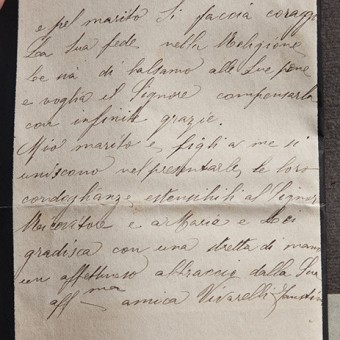 e pel marito si faccia coraggi
La sua fede nella Religione
le sia di balsamo alle sue pene
e voglia il Signore compensarla
con infinite grazie.
Mio marito e figli a me si
uniscono nel presentarle, le loro
condoglianze estensibili al Signor
e a Maria e Lei
gradisca con una stretta di mano
un affettuoso abbraccio dalla Sua
aff ma amica Vivarelli